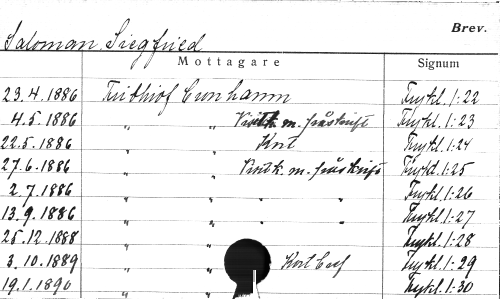 Brev.
Saloman, Siegfried
Mottagare Signum
23.4.1886 Frithiof Cronhamn Frykl. 1:22
4.5.1886 " " Visitk. m. påskrift Frykl. 1:23
22.5.1886 " " Kort Frykl. 1:24
27.6.1886 " " Visitk. m. påskrift Frykl. 1:25
2.7.1886 " " " " Frykl. 1:26
13.9.1886 " " " " Frykl. 1:27
25.12.1888 " " Frykl. 1:28
3.10.1889 " " Kort Frykl. 1:29
19.1.1890 " " Frykl. 1:30